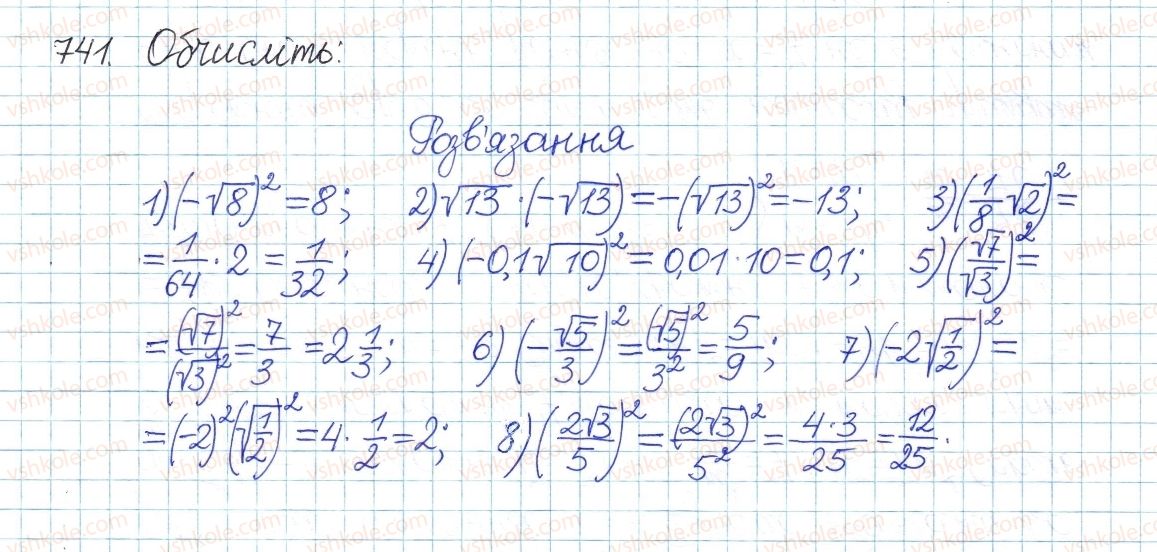 741. Обчисліть:
Розв'язання
1) (-√8)² = 8; 2) √13 · (-√13) = -(√13)² = -13; 3) (1/8 √2)² =
= 1/64 · 2 = 1/32; 4) (-0,1√10)² = 0,01 · 10 = 0,1; 5) (√7/√3)² =
= (√7)²/(√3)² = 7/3 = 2 1/3; 6) (-√5/3)² = (√5)²/3² = 5/9; 7) (-2√(1/2))² =
= (-2)² (√(1/2))² = 4 · 1/2 = 2; 8) (2√3/5)² = (2√3)²/5² = 4·3/25 = 12/25.